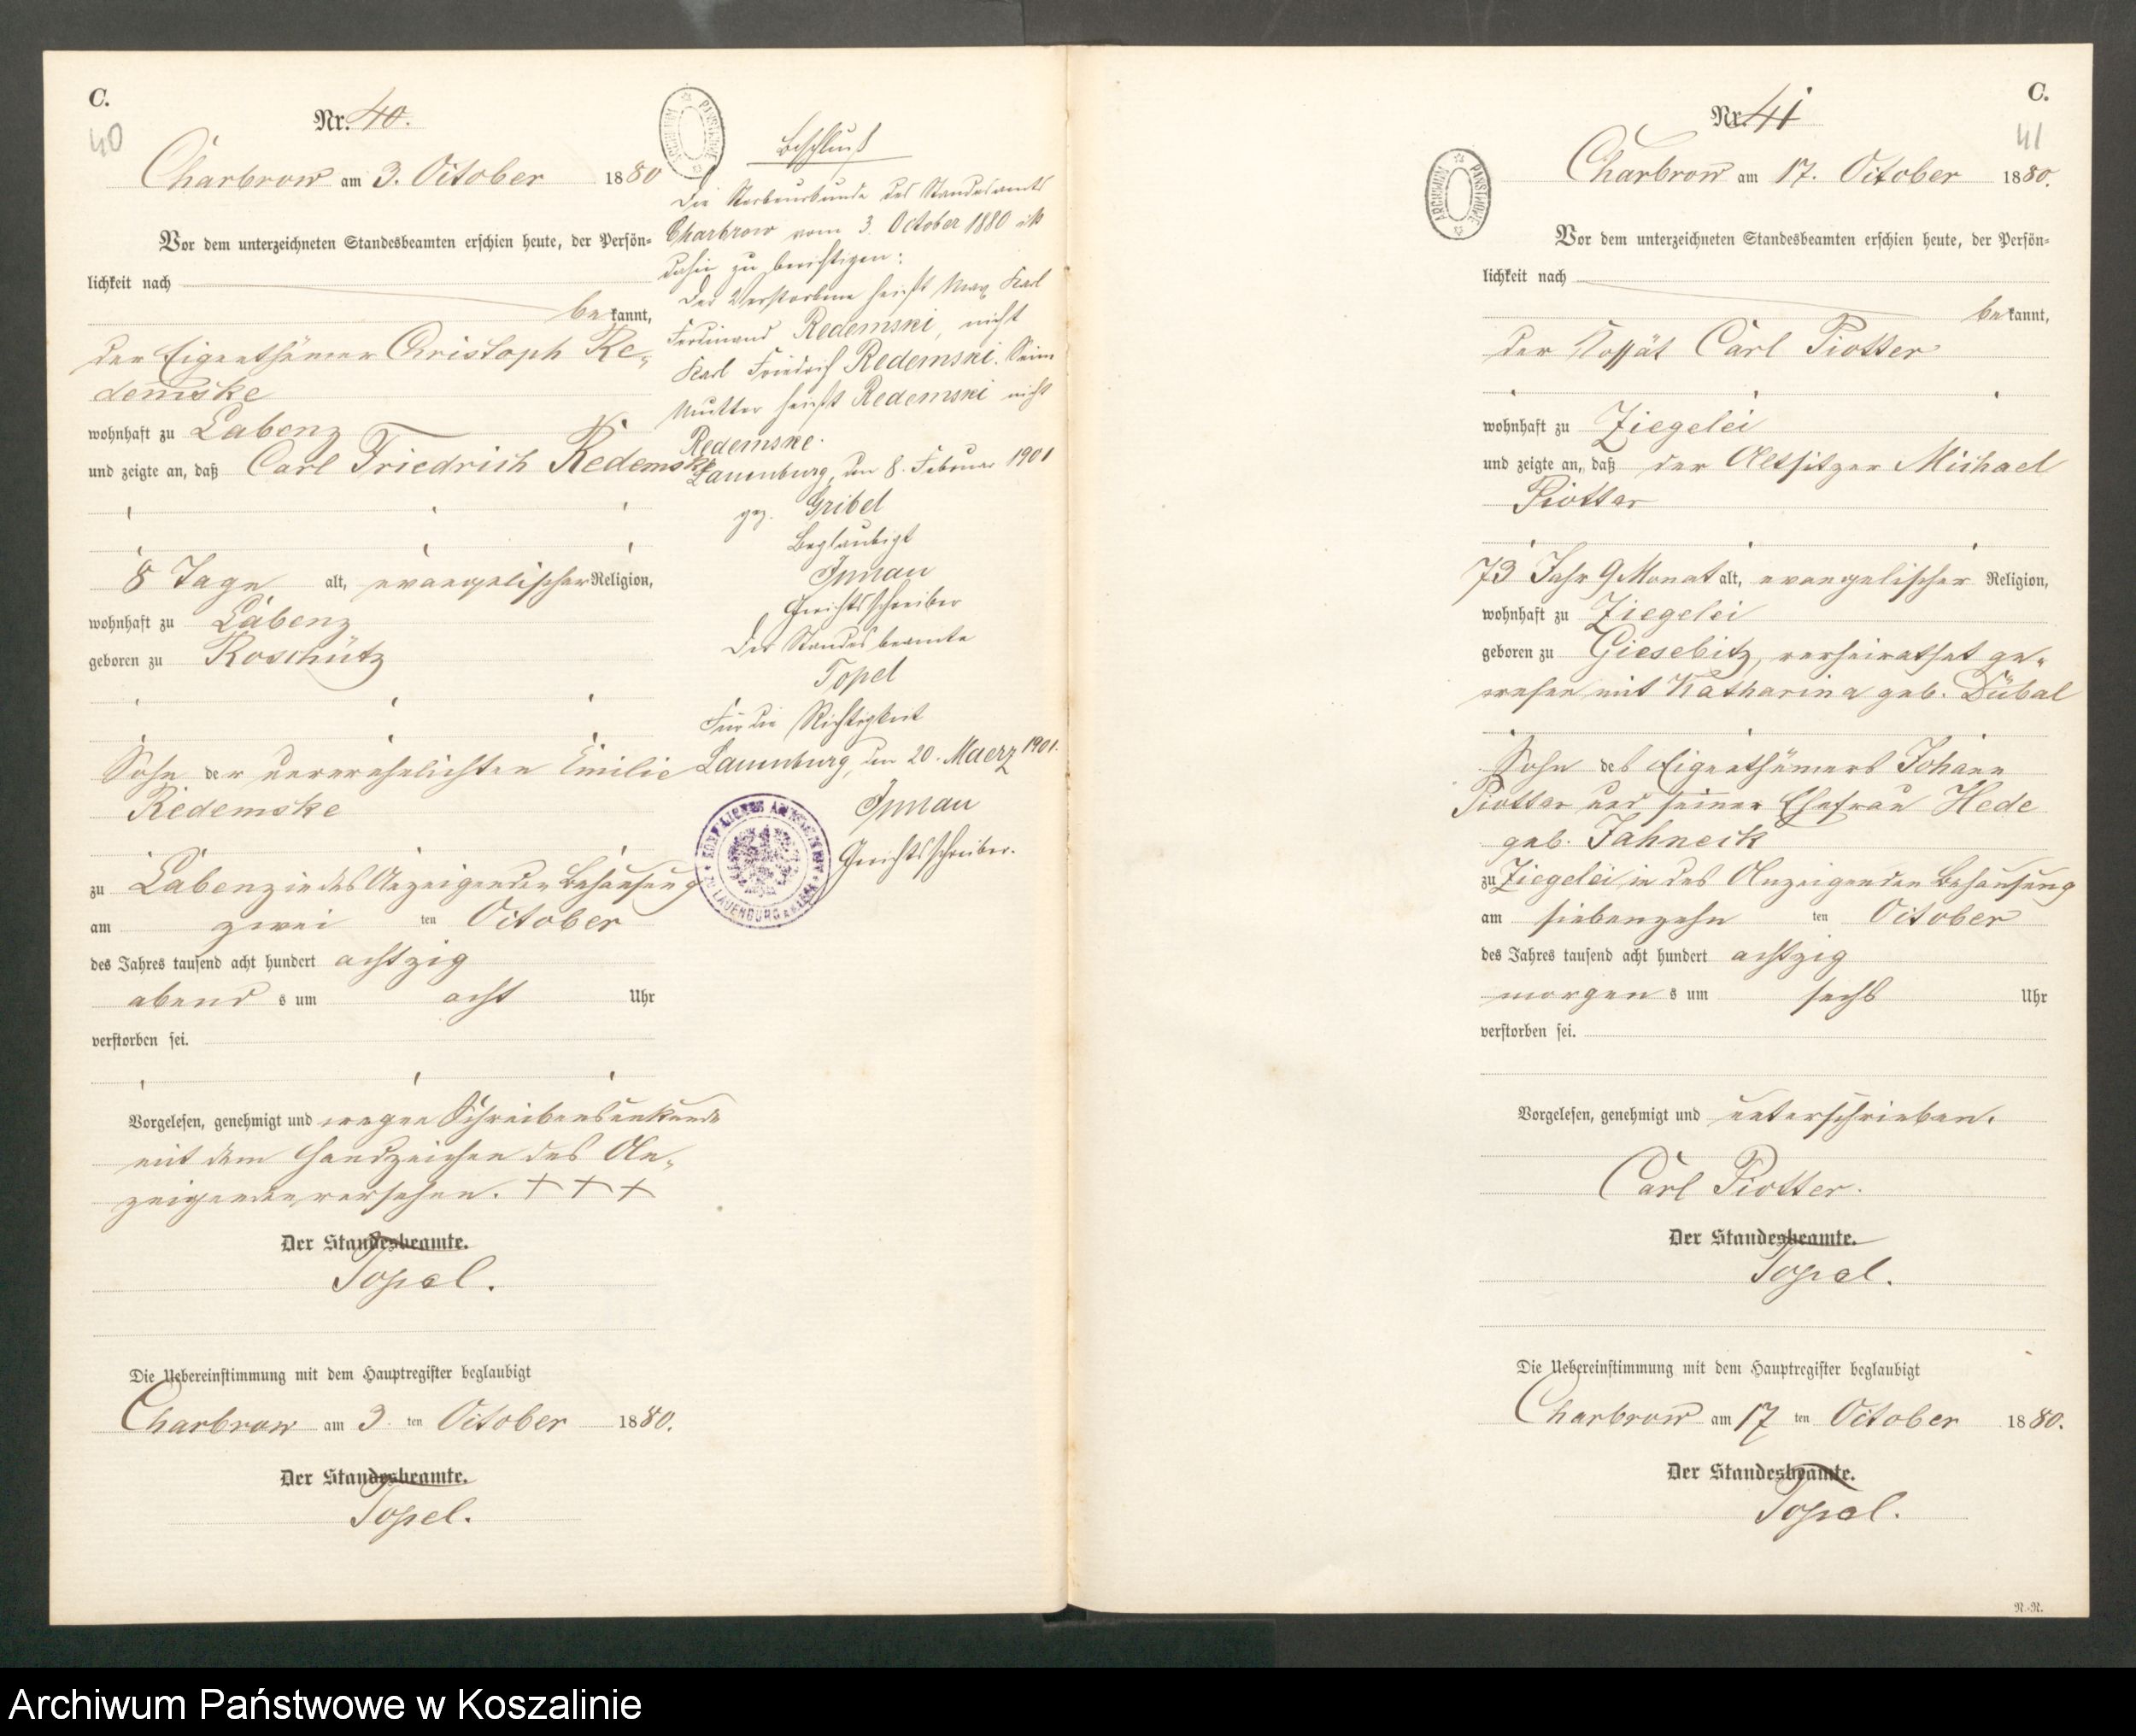 C.
40
Nr. 40.
Charbrow am 3. October 1880
Vor dem unterzeichneten Standesbeamten erschien heute, der Persön-
lichkeit nach
bekannt,
der Eigenthümer Christoph Re-
demske
wohnhaft zu Labenz
und zeigte an, daß Carl Friedrich Redemske
8 Tage alt, evangelischer Religion,
wohnhaft zu Labenz
geboren zu Roschütz
Sohn der unverehelichten Emilie
Redemske
zu Labenz in des Anzeigenden Behausung
am zwei ten October
des Jahres tausend acht hundert achtzig
abend s um acht Uhr
verstorben sei.
Vorgelesen, genehmigt und wegen Schreibensunkunde
mit dem Handzeichen des An-
zeigenden versehen. + + +
Der Standesbeamte.
Topel.
Die Uebereinstimmung mit dem Hauptregister beglaubigt
Charbrow am 3 ten October 1880.
Der Standesbeamte.
Topel.
ARCHIWUM PAŃSTWOWE
Beschluß
Die Sterbeurkunde des Standesamts
Charbrow vom 3. October 1880 ist
dahin zu berichtigen:
Der Verstorbene heißt Max Karl
Ferdinand Redemski, nicht
Karl Friedrich Redemski. Seine
Mutter heißt Redemski nicht
Redemske.
Lauenburg, den 8. Februar 1901
gez. Gribel
Beglaubigt
Gerichtsschreiber
Der Standesbeamte
Topel
Für die Richtigkeit
Lauenburg, den 20. Maerz 1901.
Gerichtsschreiber.
C.
41
Nr. 41
ARCHIWUM PAŃSTWOWE
Charbrow am 17. October 1880.
Vor dem unterzeichneten Standesbeamten erschien heute, der Persön-
lichkeit nach
bekannt,
der Kossät Carl Piotter
wohnhaft zu Ziegelei
und zeigte an, daß der Altsitzer Michael
Piotter
73 Jahr 9 Monat alt, evangelischer Religion,
wohnhaft zu Ziegelei
geboren zu Giesebitz, verheirathet ge-
wesen mit Katharina geb. Dübal
Sohn des Eigenthümers Johann
Piotter und seiner Ehefrau Hede
geb. Jahneck
zu Ziegelei in des Anzeigenden Behausung
am siebenzehn ten October
des Jahres tausend acht hundert achtzig
morgen s um sechs Uhr
verstorben sei.
Vorgelesen, genehmigt und unterschrieben.
Carl Piotter.
Der Standesbeamte.
Topel.
Die Uebereinstimmung mit dem Hauptregister beglaubigt
Charbrow am 17 ten October 1880.
Der Standesbeamte.
Topel.
R.-R.
Archiwum Państwowe w Koszalinie